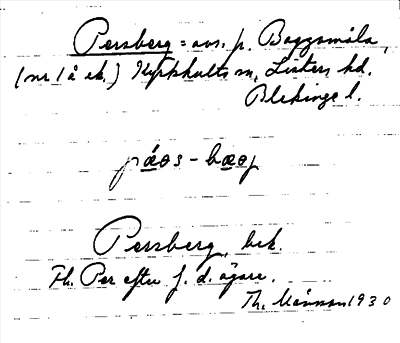 Persberg = avs. p. Baggamåla,
(nr 1 å ek.) Kyrkhults sn, Listers hd.
Blekinge l.
Persberg, bek.
Fh. Per efter f. d. ägare.
Th. Månsson 1930